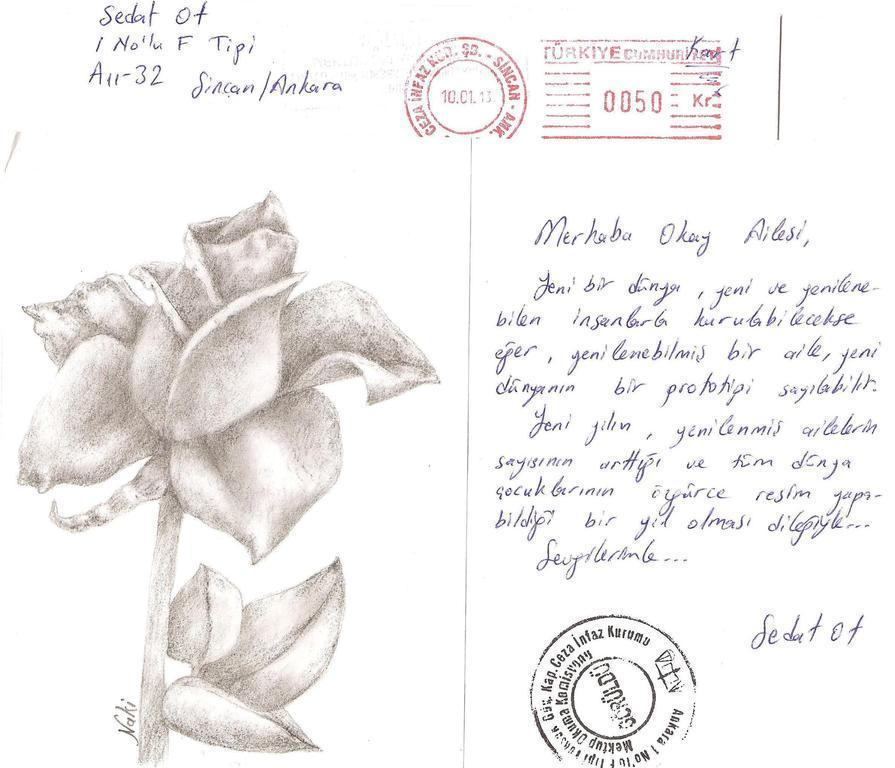 Sedat Ot
1 No'lu F Tipi
A11-32 Sincan/Ankara
CEZA İNFAZ KUR. ŞB. - SİNCAN - ANK.
10.01.13
TÜRKİYE CUMHURİ
0050 Kr
Merhaba Okay Ailesi,
Yeni bir dünya, yeni ve yenilene-
bilen insanlarla kurulabilecekse
eğer, yenilenebilmiş bir aile, yeni
dünyanın bir prototipi sayılabilir.
Yeni yılın, yenilenmiş ailelerin
sayısının arttığı ve tüm dünya
çocuklarının özgürce resim yapa-
bildiği bir yıl olması dileğiyle...
Sevgilerimle...
Sedat Ot
Ankara 1 No'lu F Tipi Yüksek Güv. Kap. Ceza İnfaz Kurumu
Mektup Okuma Komisyonu
GÖRÜLDÜ
Naki